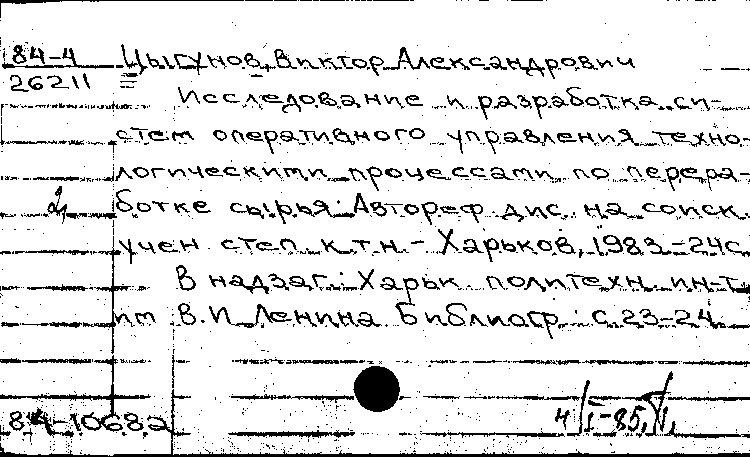 84-4 Цыгунов, Виктор Александрович
26211
Исследование и разработка си-
стем оперативного управления техно-
логическими процессами по перера-
ботке сырья: Автореф. дис. на соиск.
учен. степ. к.т.н. - Харьков, 1983. - 24с.
В надзаг.: Харьк. политехн. ин-т
им. В.И. Ленина. Библиогр.: с. 23-24.
84-10682
4/I-85